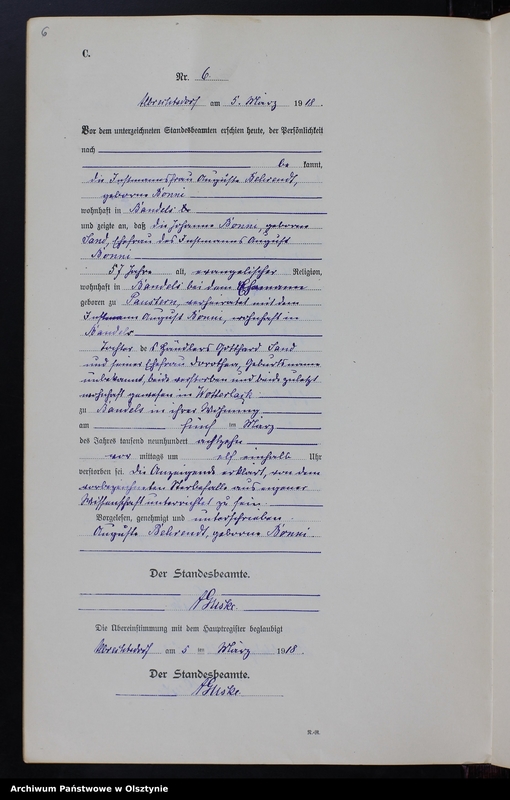 6
C.
Nr. 6.
Albrechtsdorf am 5. März 1918.
Vor dem unterzeichneten Standesbeamten erschien heute, der Persönlichkeit
nach
be kannt,
die Instmannsfrau Auguste Behrendt,
geborne Bonni
wohnhaft in Bandels
und zeigte an, daß die Johanne Bonni, geborne
Sand, Ehefrau des Instmanns August
Bonni
57 Jahre alt, evangelischer Religion,
wohnhaft in Bandels bei dem Ehemanne
geboren zu Paustern, verheiratet mit dem
Instmann August Bonni, wohnhaft in
Bandels
Tochter des Händlers Gotthard Sand
und seiner Ehefrau Dorothea, Geburtsname
unbekannt, beide verstorben und beide zuletzt
wohnhaft gewesen in Wotterlack
zu Bandels in ihrer Wohnung
am fünf ten März
des Jahres tausend neunhundert achtzehn
vor mittags um elf einhalb Uhr
verstorben sei. Die Anzeigende erklärt, von dem
vorbezeichneten Sterbefalle aus eigener
Wissenschaft unterrichtet zu sein.
Vorgelesen, genehmigt und unterschrieben.
Auguste Behrendt, geborne Bonni
Der Standesbeamte.
Guske.
Die Übereinstimmung mit dem Hauptregister beglaubigt
Albrechtsdorf am 5 ten März 1918.
Der Standesbeamte.
Guske
Archiwum Państwowe w Olsztynie